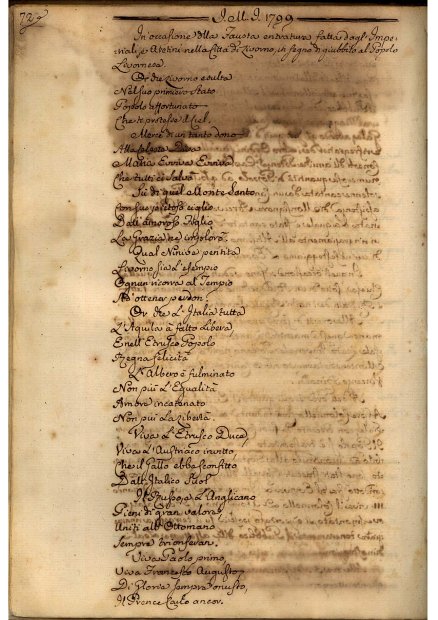 72
J. M. J. 1799
In occasione della fausta entratura fatta dagl' Impe-
riali, e Aretini nella Città di Livorno, in segno di giubbilo al Popolo
Livornese.
Or che Livorno esulta
Nel suo primiero stato
Popolo
Che te protesse il Ciel.
Mercè di un tanto dono
Alla celeste Diva
Maria Evviva Evviva
Che tutti ci salvò
Sù di quel Monte Santo
Con suo pietoso ciglio
Dall' amoroso Figlio
La Grazia ne implorò.
Qual Ninive pentita
Livorno sia l'esempio
Ognun ricorra al Tempio
Ad' ottener perdon.
Or che L' Italia tutta
L'Aquila à fatto libera,
E nell' Etrusco Popolo
Regna felicità
L' Albero è fulminato
Non più L' Egualità
Ambre incatenato
Non più La libertà.
Viva L' Etrusco Duce,
Viva L' Austriaco invitto
Che il Gallo ebbe sconfitto
Dall' Italico Suol
Il Russo, e L' Anglicano
Pieni di gran valore,
Uniti all' Ottomano
Sempre trionferan.
Viva Paolo primo,
Viva Francesco Augusto,
Di Gloria sempre onusto,
Il Prence Carlo ancor.